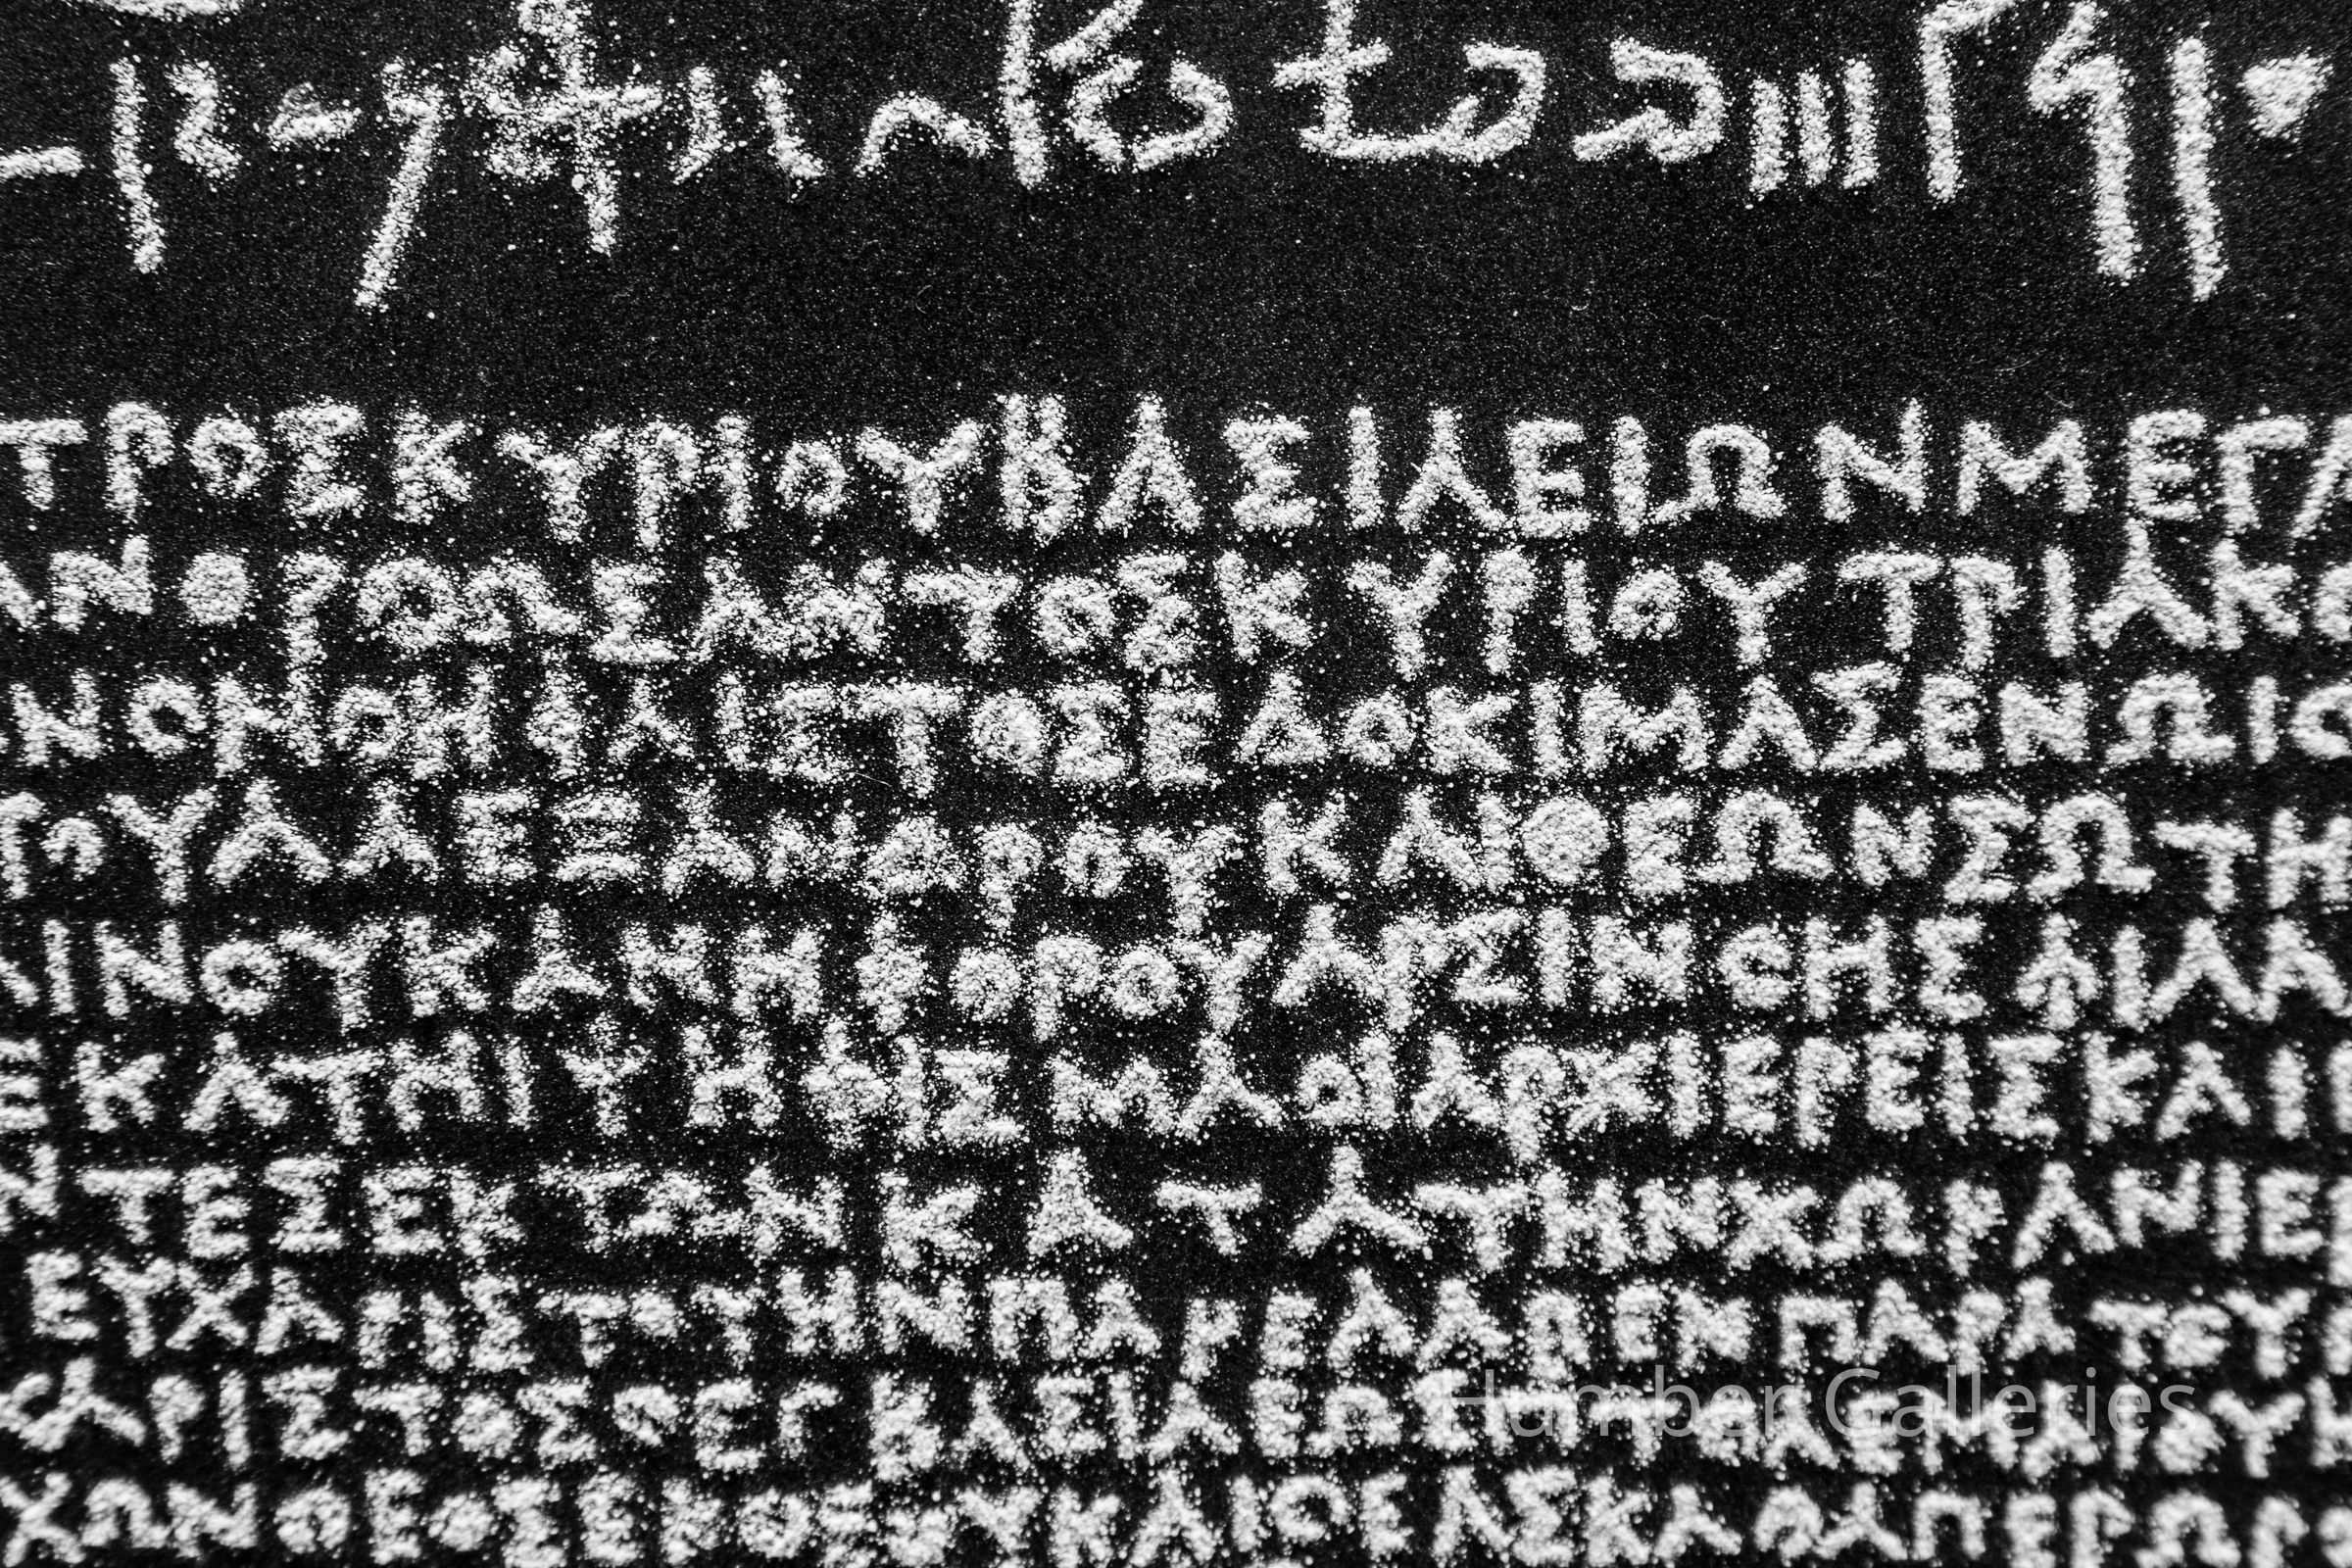 ΤΡΟΣΚΥΡΙΟΥΒΑΣΙΛΕΙΩΝΜΕΓΑ
ΑΝΟΡΘΩΣΑΝΤΟΣΚΥΡΙΟΥΤΡΙΑΚΟ
ΝΟΝΟΗΦΑΙΣΤΟΣΕΔΟΚΙΜΑΣΕΝΩΙΟ
ΤΟΥΑΛΕΞΑΝΔΡΟΥΚΑΙΘΕΩΝΣΩΤΗ
ΙΝΟΥΚΑΝΗΦΟΡΟΥΑΡΣΙΝΟΗΣΦΙΛΑ
ΕΚΑΤΗΙΨΗΦΙΣΜΑΟΙΑΡΧΙΕΡΕΙΣΚΑΙ
ΝΤΕΣΕΚΤΩΝΚΑΤΑΤΗΝΧΩΡΑΝΙΕ
ΕΥΧΑΡΙΣΤΟΤΗΝΠΑΡΕΛΑΒΕΝΠΑΡΑΤΟΥ
ΧΑΡΙΣΤΟΣΟΕΓΒΑΣΙΛΕΩΣΠΤΟΛΕΜΑΙΟΥ
ΧΩΝΘΕΟΣΕΚΘΕΟΥΚΑΙΘΕΑΣΚΑΘΑΠΕΡΩΡ
Humber Galleries